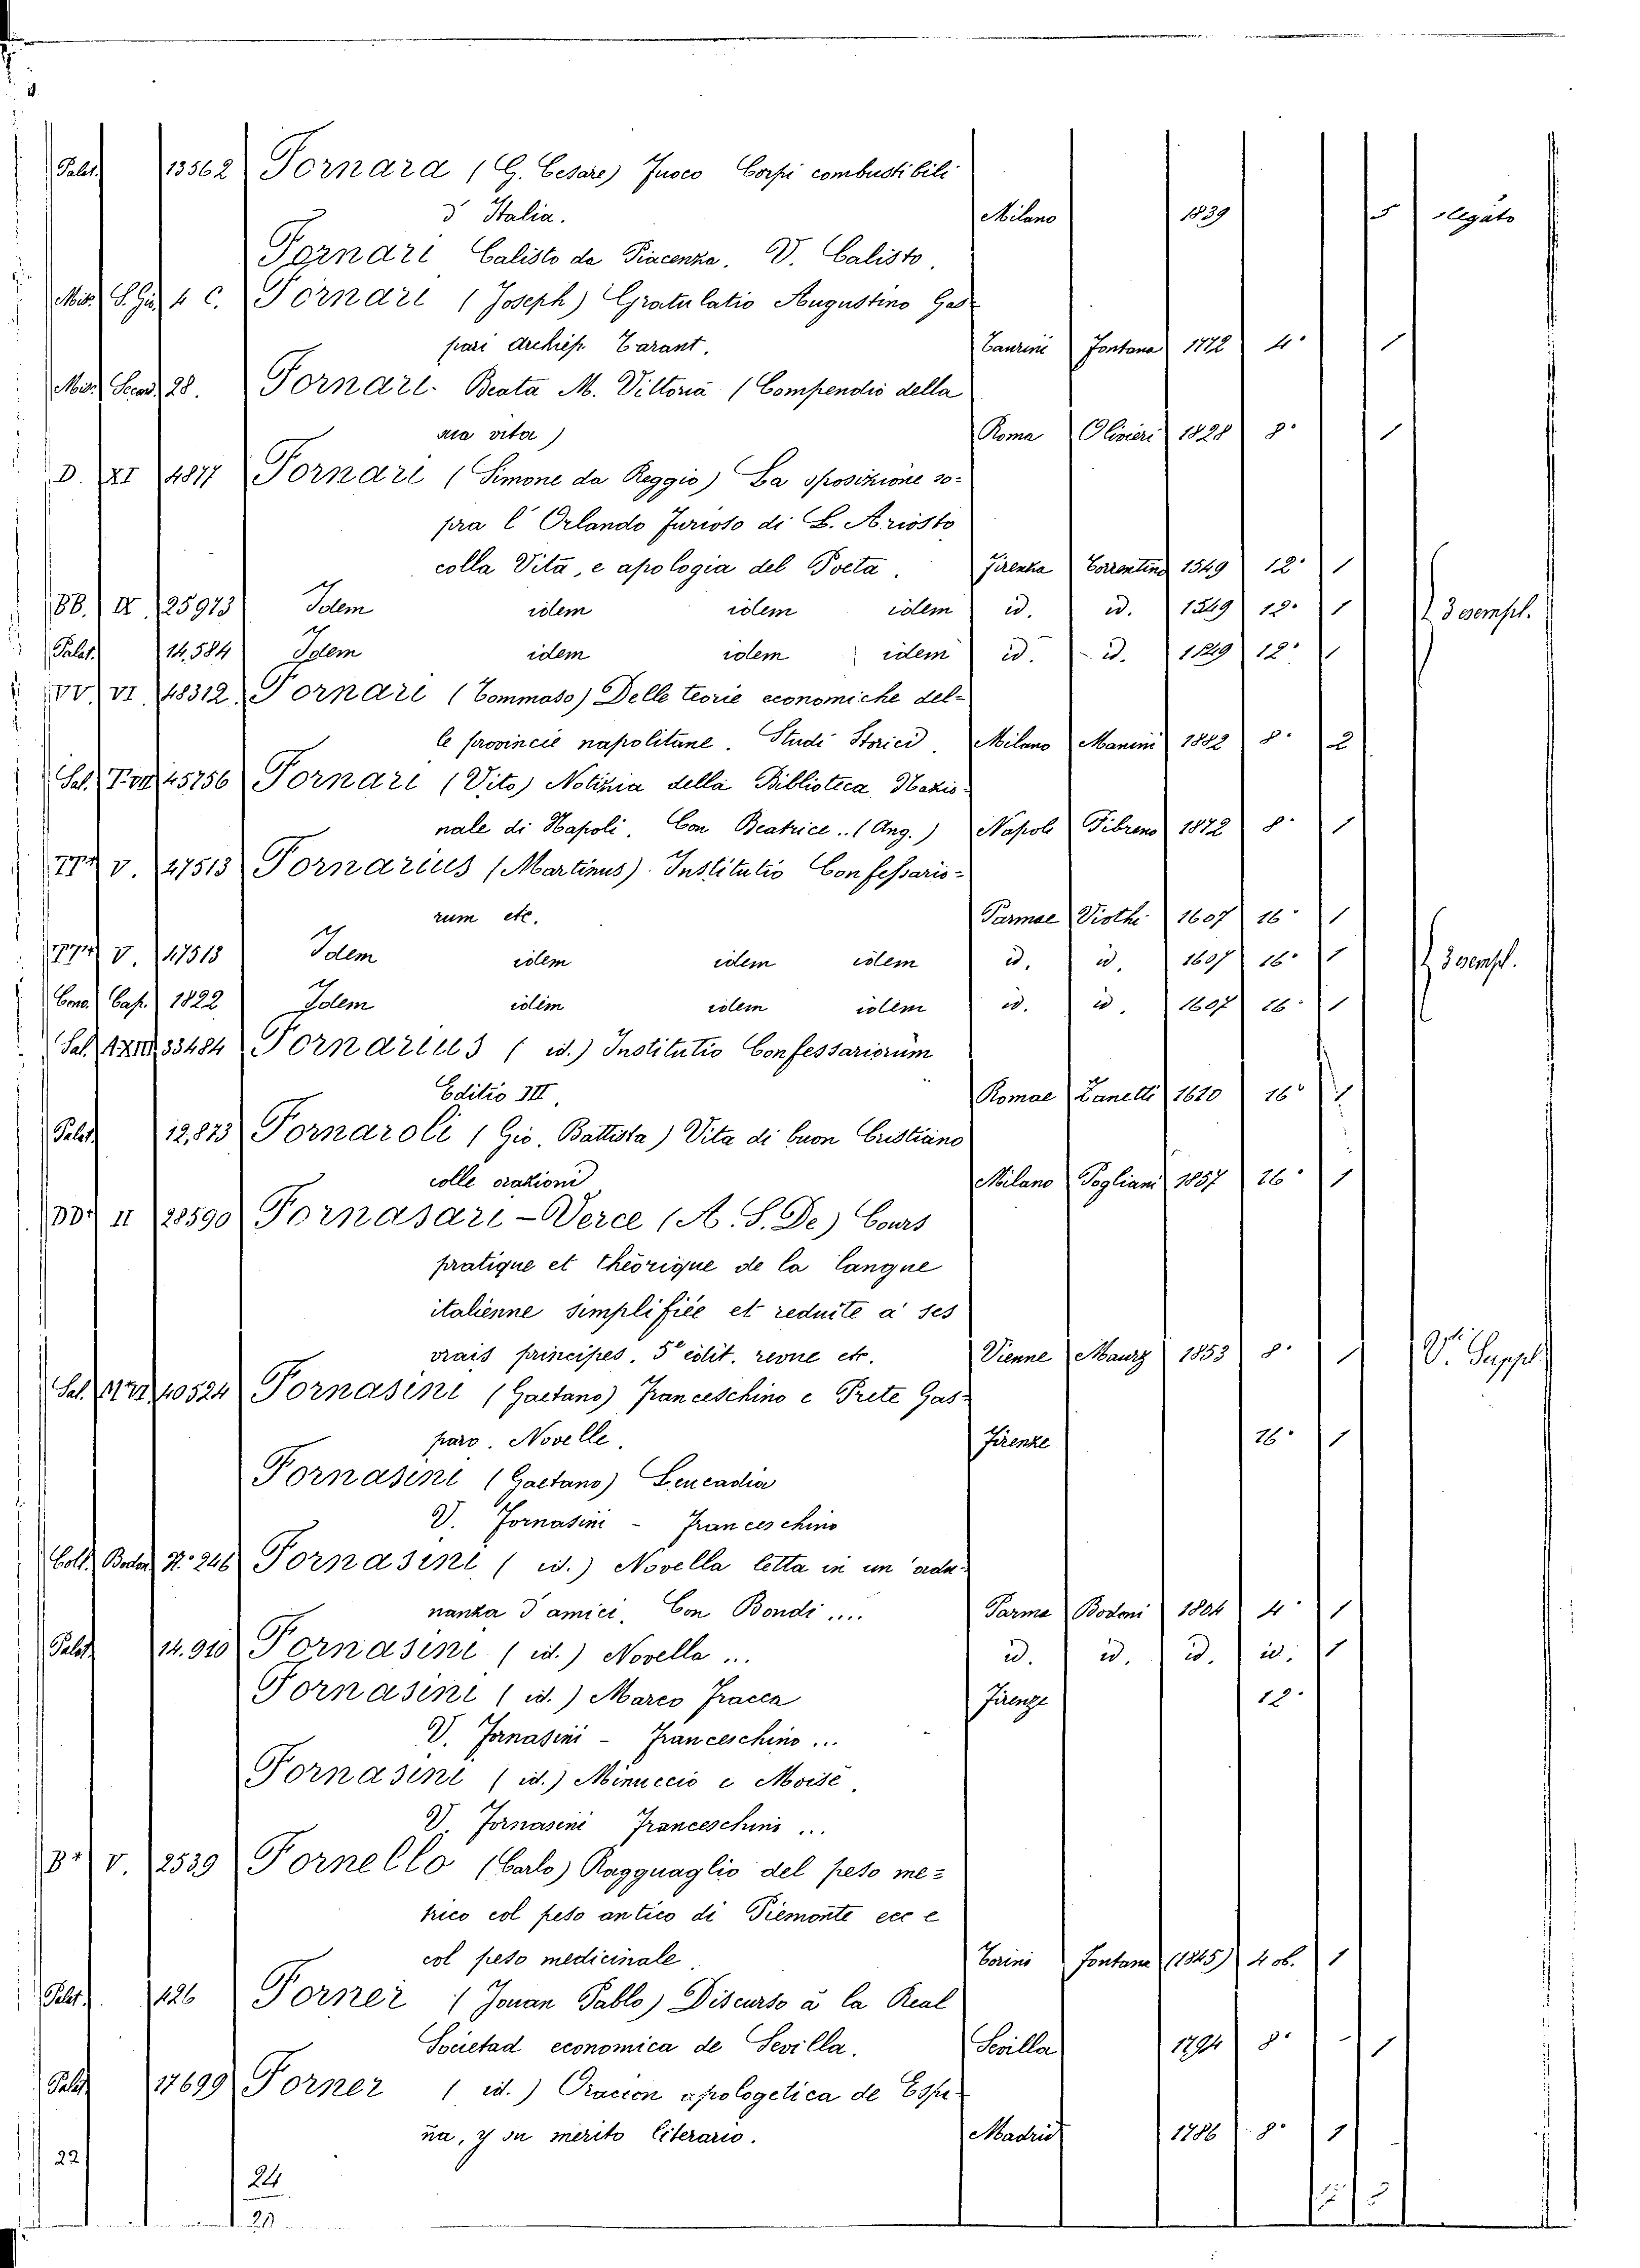 Palat. 13562 Fornara (G. Cesare) Fuoco Corpi combustibili
d'Italia. Milano 1839 5 slegato
Fornari Calisto da Piacenza. V. Calisto.
Misc. 4 C. Fornari (Joseph) Gratulatio Augustino Gas-
pari Archiep. Tarant. Taurini Fontana 1772 4° 1
Misc. 28. Fornari. Beata M. Vittoria (Compendio della
sua vita) Roma Olivieri 1828 8° 1
D. XI 4877 Fornari (Simone da Reggio) La sposizione so-
pra l'Orlando Furioso di L. Ariosto
colla Vita, e apologia del Poeta. Firenze Torrentino 1549 12° 1
BB. IX 25973 Idem idem idem idem id. id. 1549 12° 1 3 esempl.
Palat. 14.584 Idem idem idem idem id. id. 1549 12° 1
VV. VI 48312 Fornari (Tommaso) Delle teorie economiche del-
le provincie napolitane. Studi Storici. Milano Manini 1882 8° 2
Sal. 45756 Fornari (Vito) Notizia della Biblioteca Nazio-
nale di Napoli. Con Beatrice.. (Ang.) Napoli Fibreno 1872 8° 1
V. 47513 Fornarius (Martinus). Institutio Confessario-
rum etc. Parmae Viothi 1607 16° 1
V. 47513 Idem idem idem idem id. id. 1607 16° 1 3 esempl.
Conv. Cap. 1822 Idem idem idem idem id. id. 1607 16° 1
Sal. 33484 Fornarius (id.) Institutio Confessariorum
Editio III. Romae Zanetti 1610 16° 1
Palat. 12,873 Fornaroli (Gio. Battista) Vita di buon Cristiano
colle orazioni Milano Pogliani 1857 16° 1
II 28590 Fornasari-Verce (A. S. De) Cours
pratique et théorique de la langue
italienne simplifiée et reduite à ses
vrais principes. 5e edit. revue etc. Vienne Maurz 1853 8° 1 V. Suppl.
Sal. 40524 Fornasini (Gaetano) Franceschino e Prete Gas-
paro. Novelle. Firenze 16° 1
Fornasini (Gaetano) Leucadia
V. Fornasini - Franceschino
Coll. Bodon. N.° 246 Fornasini (id.) Novella letta in un'adu-
nanza d'amici. Con Bondi .... Parma Bodoni 1804 4° 1
Palat. 14.910 Fornasini (id.) Novella ... id. id. id. id. 1
Fornasini (id.) Marco Fracca Firenze 12°
V. Fornasini - Franceschino ...
Fornasini (id.) Minuccio e Moisè.
V. Fornasini Franceschino ...
V. 2539 Fornello (Carlo) Ragguaglio del peso me-
trico col peso antico di Piemonte ecc e
col peso medicinale. Torino Fontana (1845) 4 ob. 1
Palat. 426 Forner (Jouan Pablo) Discurso à la Real
Societad economica de Sevilla. Sevilla 1794 8° 1
Palat. 17699 Forner (id.) Oracion apologetica de Espe-
ña, y su merito literario. Madrid 1786 8° 1
22
24